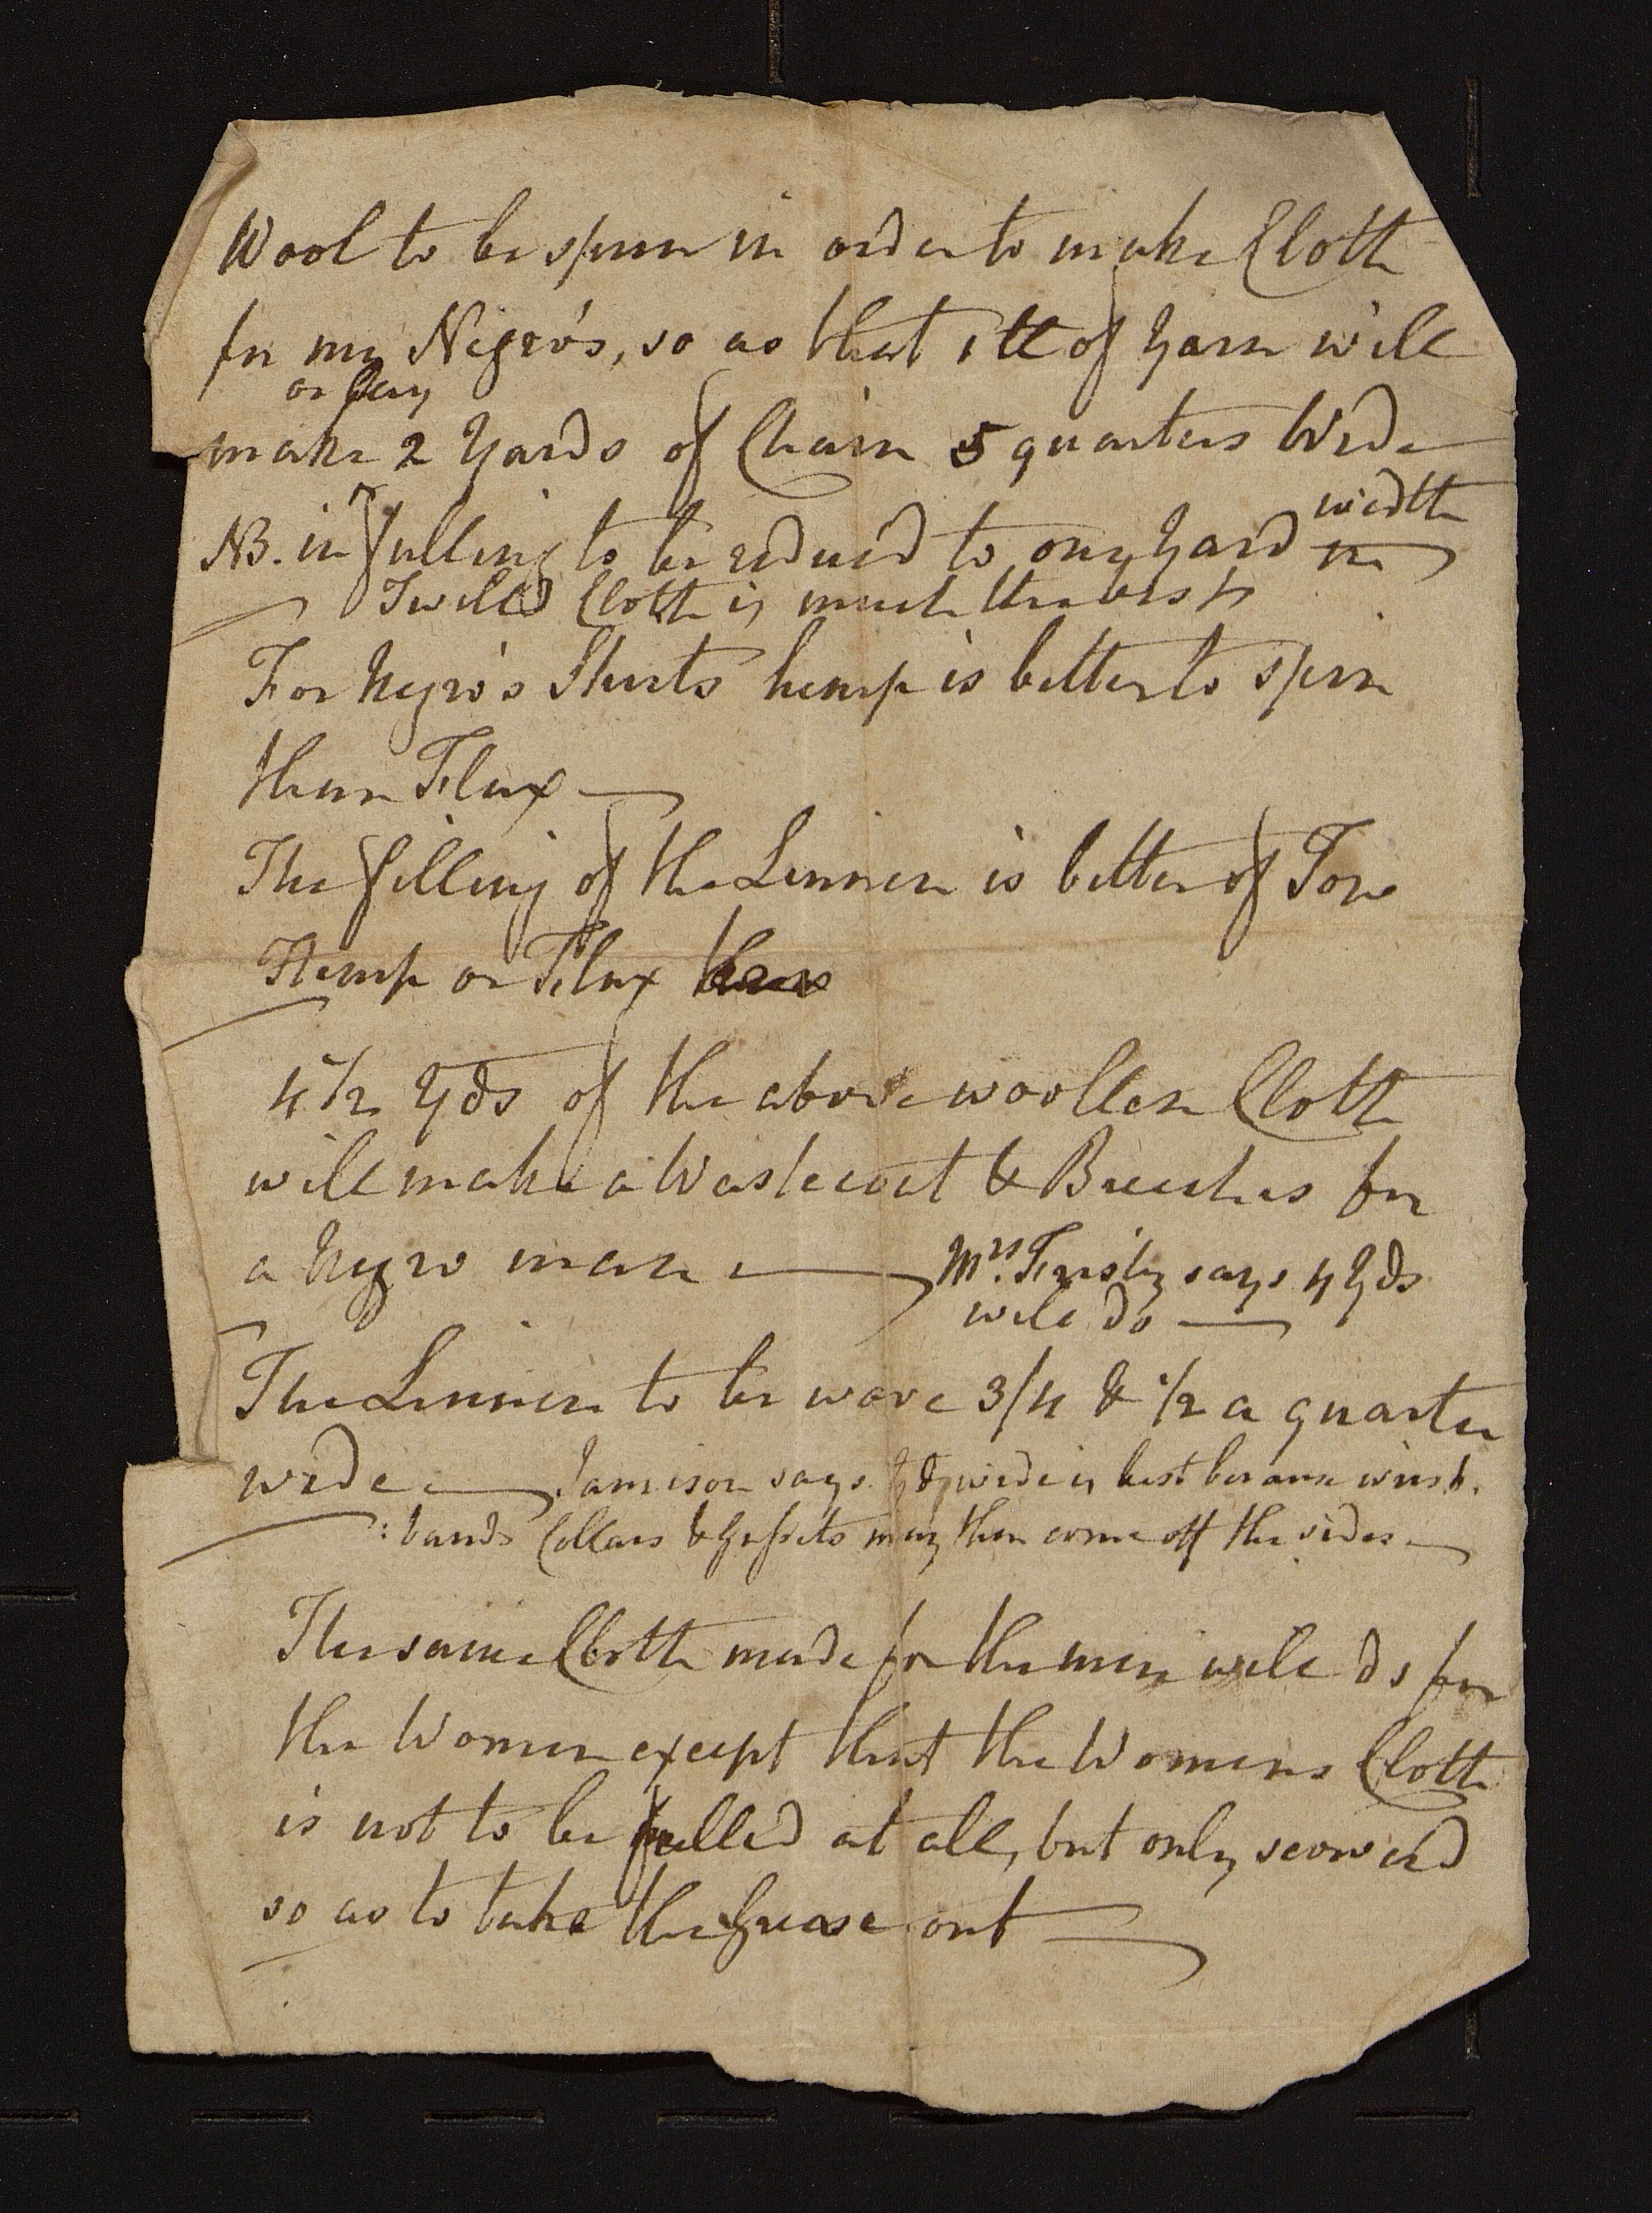 Wool to be spun in order to make Cloth
for my Negro's, so as that 1 lb of Yarn will
or
make 2 Yards of Chain 5 quarters Wide
width
NB. in fulling to be reduced to one Yard
Twilld Cloth is much the best
For Negro's Shirts hemp is better to spin
than Flax
The filling of the Linnen is better of Tow
Hemp or Flax
4 1/2 Yds of the above woollen Cloth
will make a Wastecoat & Breeches for
a Negro man Mrs. says 4 Yds
will do
The Linnen to be wove 3/4 & 1/2 a quarter
wide Jamison says Yd wide is best because wrist
:bands Collars & Gussets may then come off the sides
The same Cloth made for the men will do for
the Women except that the Womens Cloth
is not to be fulled at all, but only scowerd
so as to take the Grease out